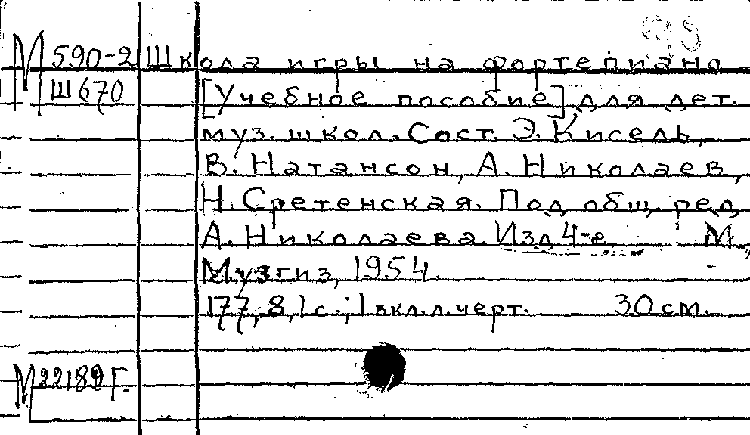 М 590-2 Школа игры на фортепиано
Ш670 [Учебное пособие] для дет.
муз. школ. Сост. Э. Кисель,
В. Натансон, А. Николаев,
Н. Сретенская. Под общ. ред.
А. Николаева. Изд 4-е М.,
Музгиз, 1954.
177, 8, 1 с.; 1 вкл. л. черт. 30 см.
М22189 Г.